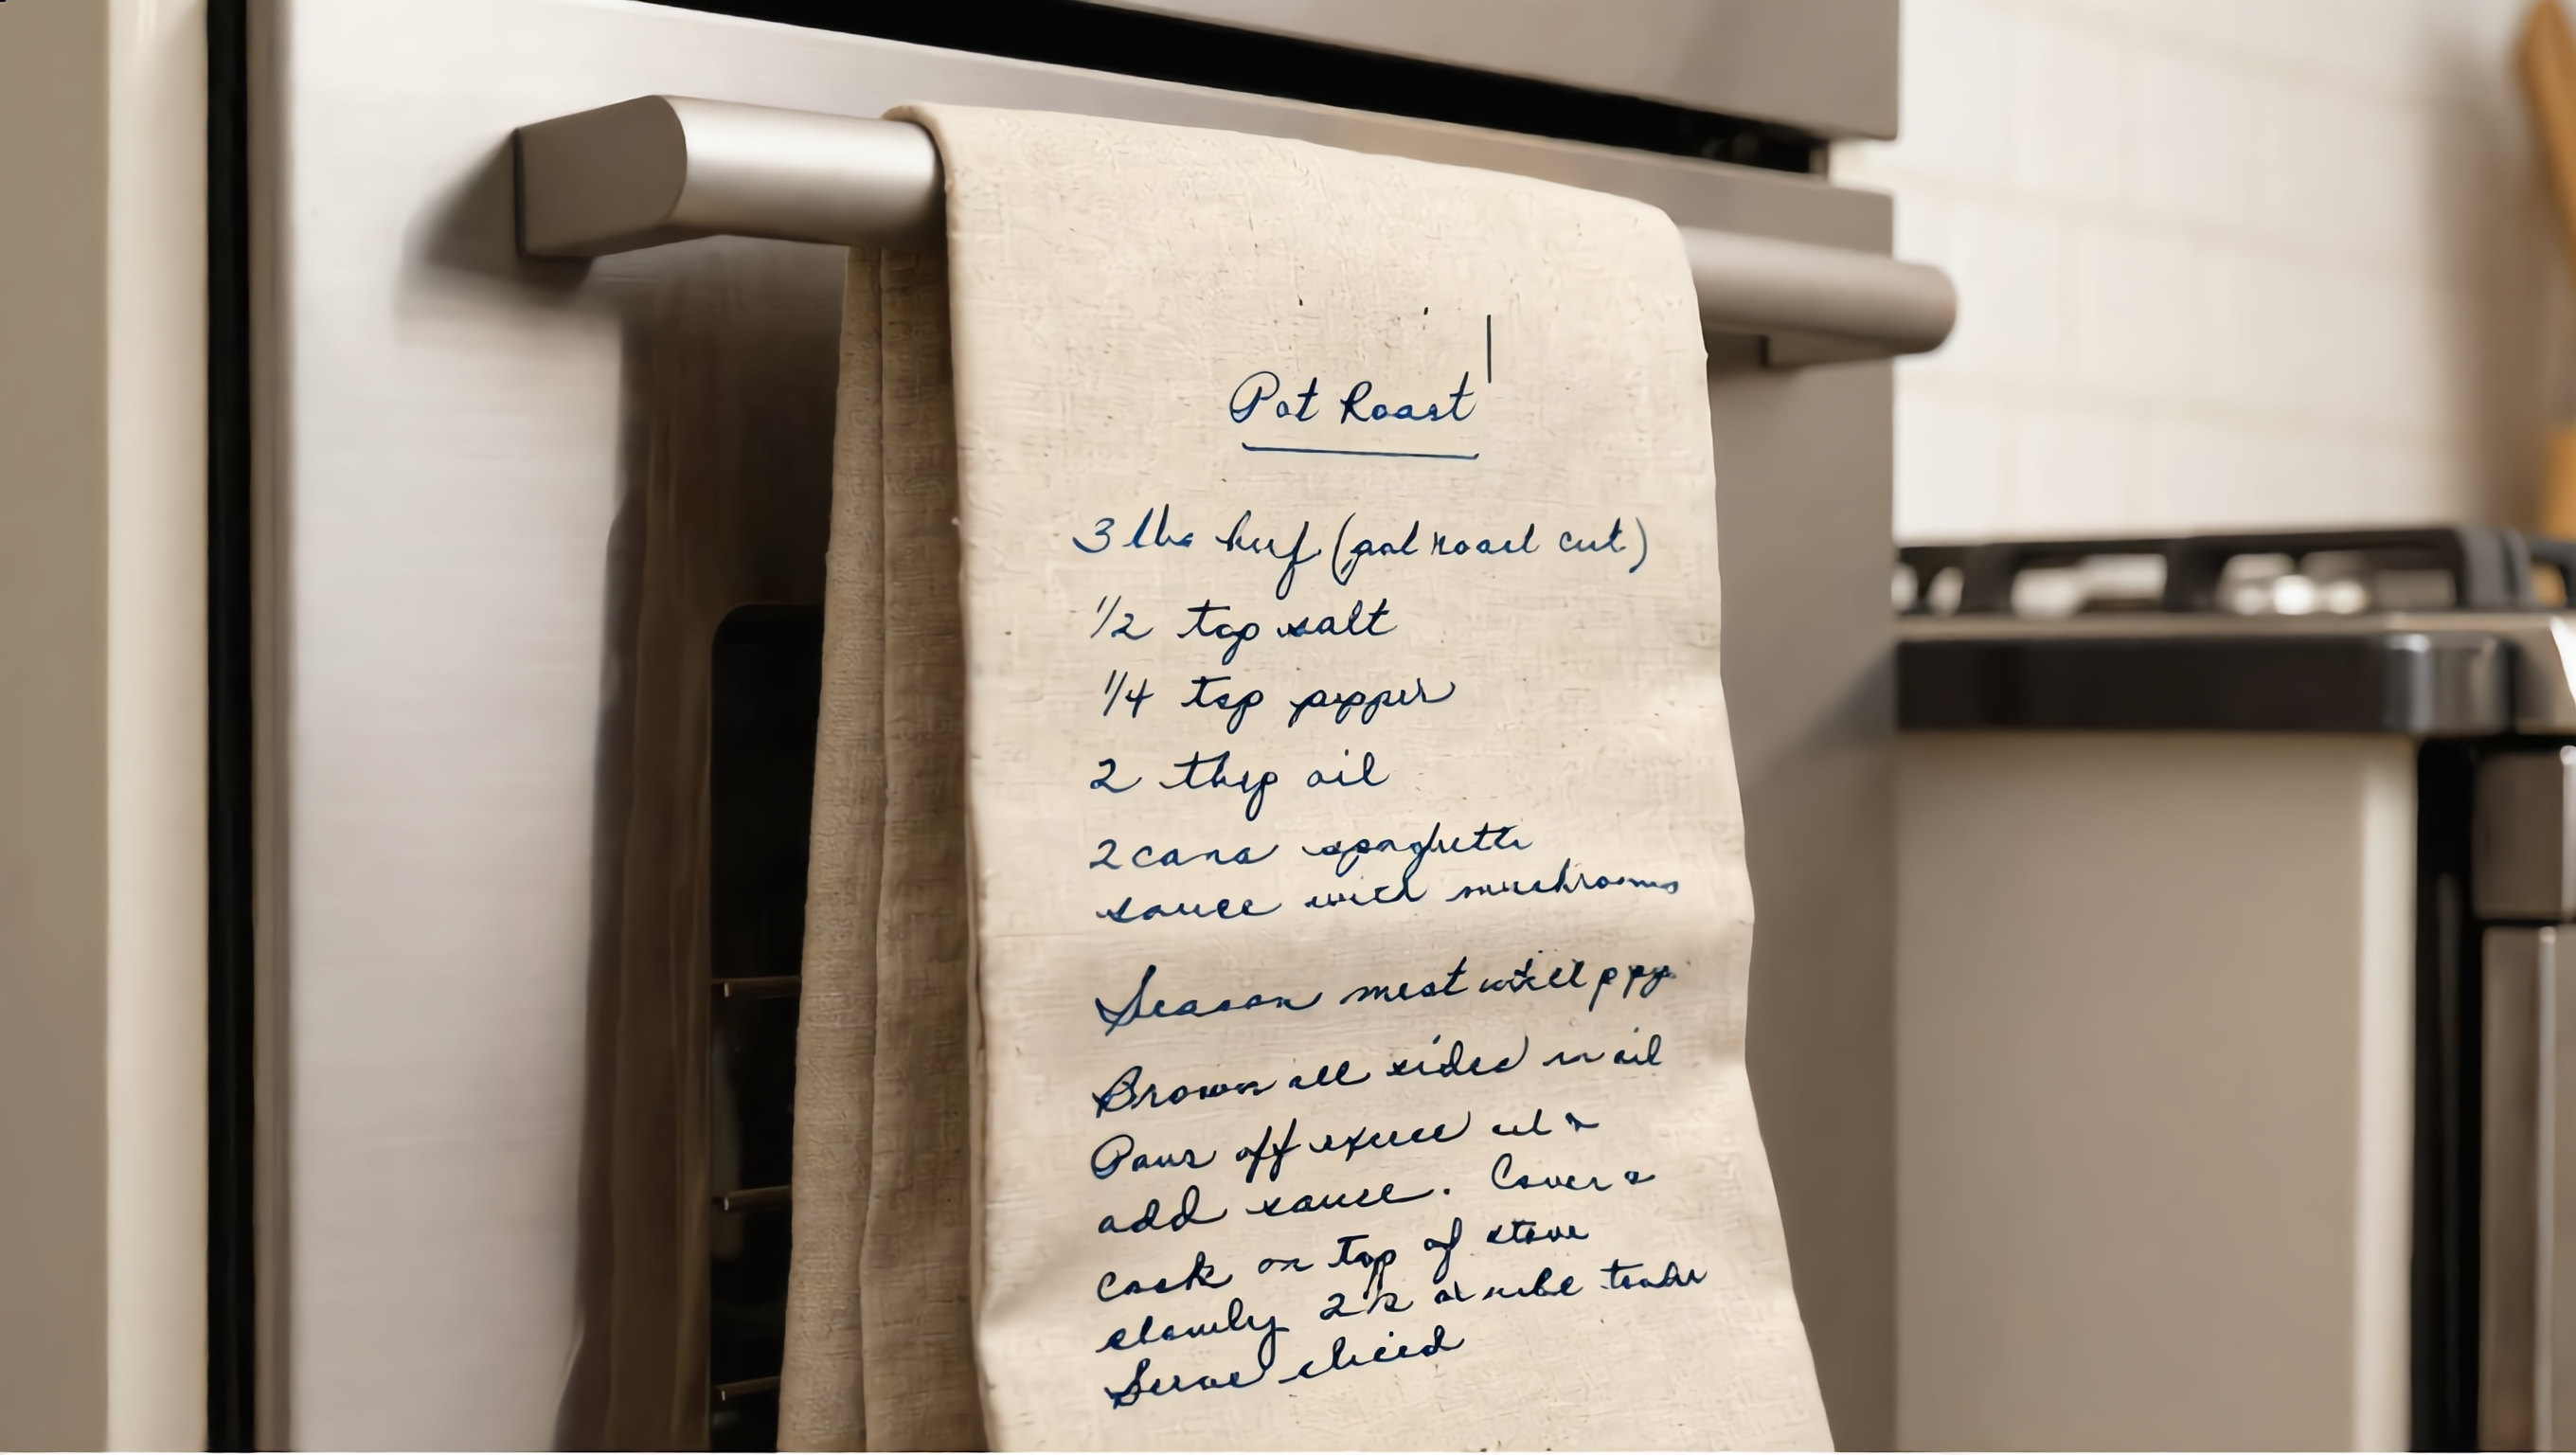 Pot Roast
3 lbs beef (pot roast cut)
1/2 tsp salt
1/4 tsp pepper
2 tbsp oil
2 cans spaghetti
sauce with mushrooms
Season meat
Brown all sides in oil
Pour off excess oil &
add sauce. Cover &
cook on top of stove
slowly 2 1/2 until tender
Serve sliced